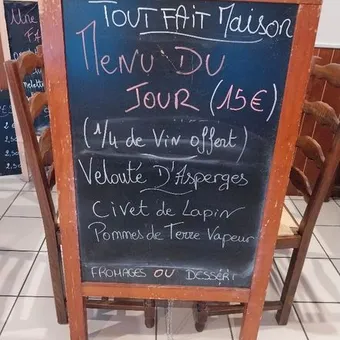 TOUT FAIT MAISON
MENU DU
JOUR (15€)
(1/4 de Vin offert)
Velouté D'Asperges
Civet de Lapin
Pommes de Terre Vapeur
FROMAGES OU DESSERT
Une